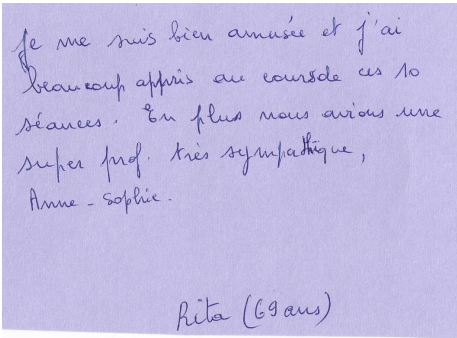 Je me suis bien amusée et j'ai
beaucoup appris au cours de ces 10
séances. En plus nous avions une
super prof. très sympathique,
Anne-Sophie.
Rita (69 ans)